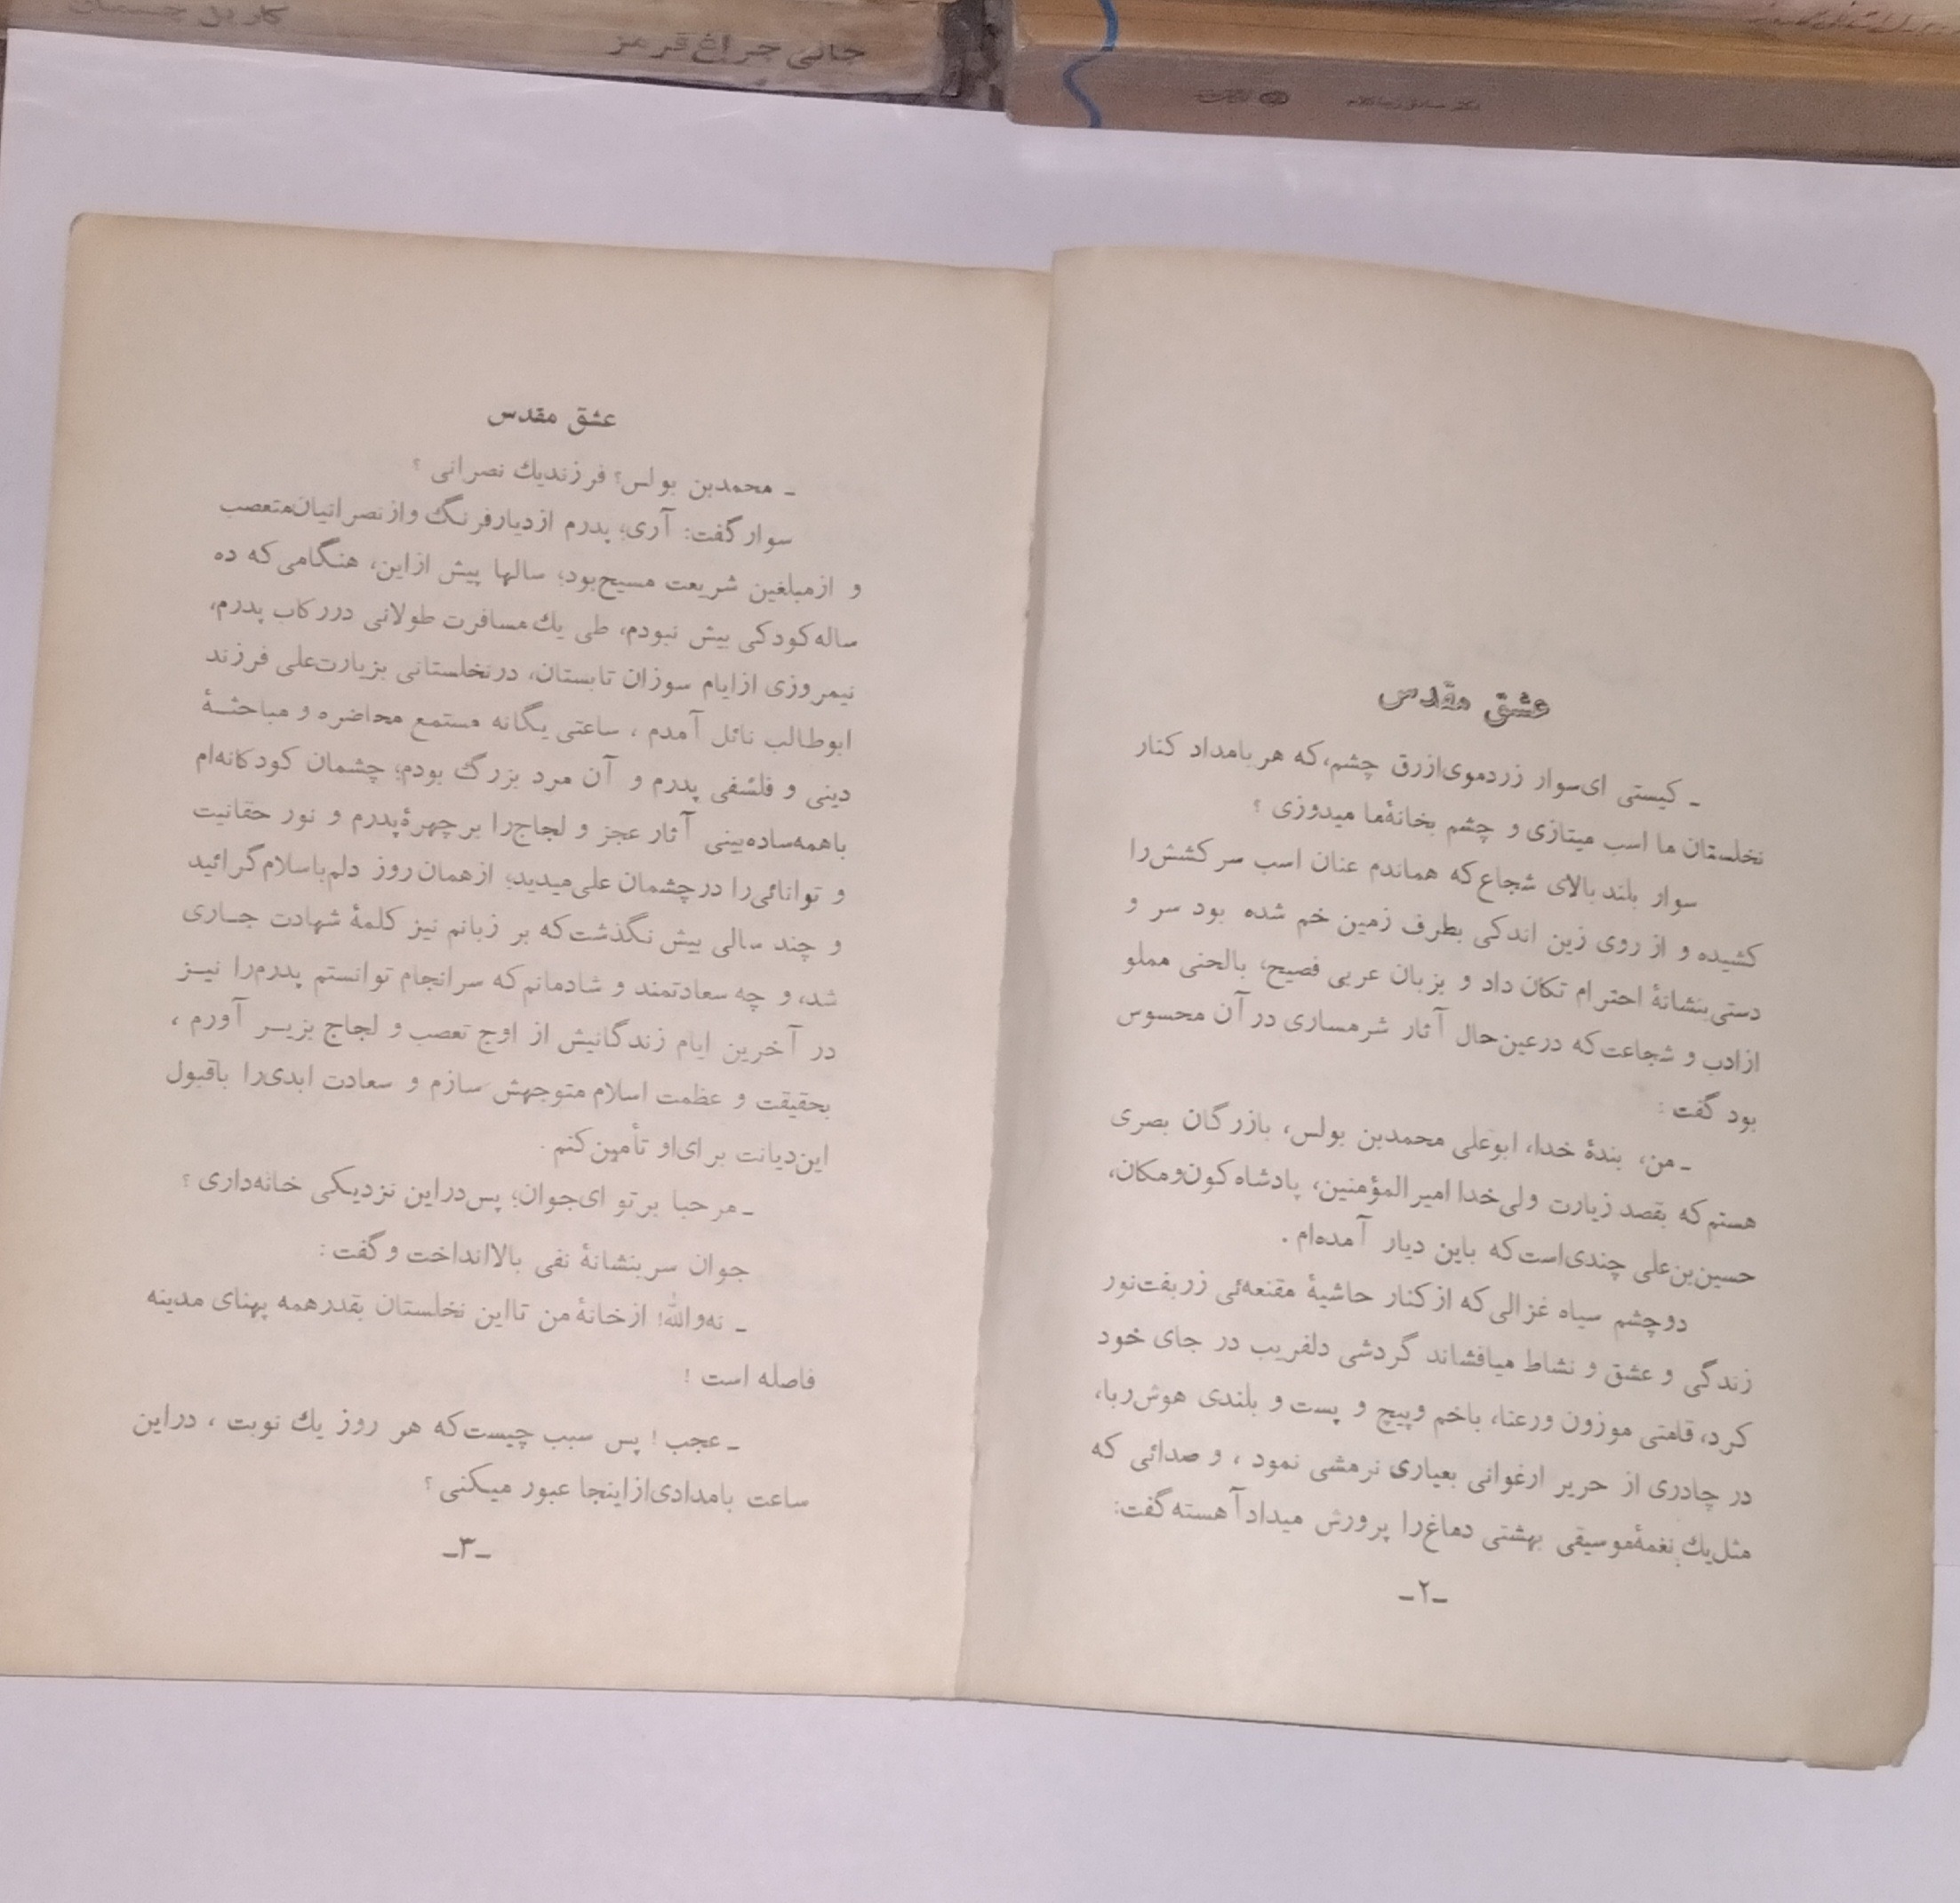 جانی چراغ قرمز
عشق مقدس
ـ کیستی ای‌سوار زردموی‌ازرق چشم،که هربامداد کنار
نخلستان ما اسب میتازی و چشم بخانهٔ‌ما میدوزی ؟
سوار بلند بالای شجاع‌که هماندم عنان اسب سرکشش‌را
کشیده و از روی زین اندکی بطرف زمین خم شده بود سر و
دستی‌بنشانهٔ احترام تکان داد و بزبان عربی فصیح، بالحنی مملو
ازادب و شجاعت‌که درعین‌حال آثار شرمساری در آن محسوس
بود گفت :
ـ من، بندهٔ خدا، ابوعلی محمدبن بولس، بازرگان بصری
هستم‌که بقصد زیارت ولی‌خدا امیرالمؤمنین، پادشاه‌کون‌ومکان،
حسین‌بن‌علی چندی‌است‌که باین دیار آمده‌ام .
دوچشم سیاه غزالی‌که ازکنار حاشیهٔ مقنعه‌ئی زربفت‌نور
زندگی و عشق و نشاط میافشاند گردشی دلفریب در جای خود
کرد، قامتی موزون ورعنا، باخم وپیچ و پست و بلندی هوش‌ربا،
در چادری از حریر ارغوانی بعیاری نرمشی نمود ، و صدائی که
مثل‌یك نغمهٔ‌موسیقی بهشتی دماغ‌را پرورش میدادآهسته‌گفت:
ـ۲ـ
عشق مقدس
ـ محمدبن بولس؟ فرزندیك نصرانی ؟
سوارگفت: آری؛ پدرم ازدیارفرنگ وازنصرانیان‌متعصب
و ازمبلغین شریعت مسیح‌بود؛ سالها پیش ازاین، هنگامی‌که ده
ساله‌کودکی بیش نبودم، طی یك‌مسافرت طولانی دررکاب پدرم،
نیمروزی ازایام سوزان تابستان، درنخلستانی بزیارت‌علی فرزند
ابوطالب نائل آمدم ، ساعتی یگانه مستمع محاضره و مباحثـهٔ
دینی و فلسفی پدرم و آن مرد بزرگ بودم؛ چشمان کودکانه‌ام
باهمه‌ساده‌بینی آثار عجز و لجاج‌را برچهرهٔ‌پدرم و نور حقانیت
و توانائی‌را درچشمان علی‌میدید؛ ازهمان روز دلم‌باسلام‌گرائید
و چند سالی بیش نگذشت‌که بر زبانم نیز کلمهٔ شهادت جـاری
شد، و چه سعادتمند و شادمانم‌که سرانجام توانستم پدرم‌را نیـز
در آخرین ایام زندگانیش از اوج تعصب و لجاج بزیـر آورم ،
بحقیقت و عظمت اسلام متوجهش سازم و سعادت ابدی‌را باقبول
این‌دیانت برای‌او تأمین‌کنم .
ـ مرحبا برتو ای‌جوان؛ پس‌دراین نزدیکی خانه‌داری ؟
جوان سربنشانهٔ نفی بالاانداخت وگفت :
ـ نه‌والله! ازخانهٔ‌من تااین نخلستان بقدرهمه پهنای مدینه
فاصله است !
ـ عجب ! پس سبب چیست‌که هر روز یك نوبت ، دراین
ساعت بامدادی‌ازاینجا عبور میکنی ؟
ـ۳ـ